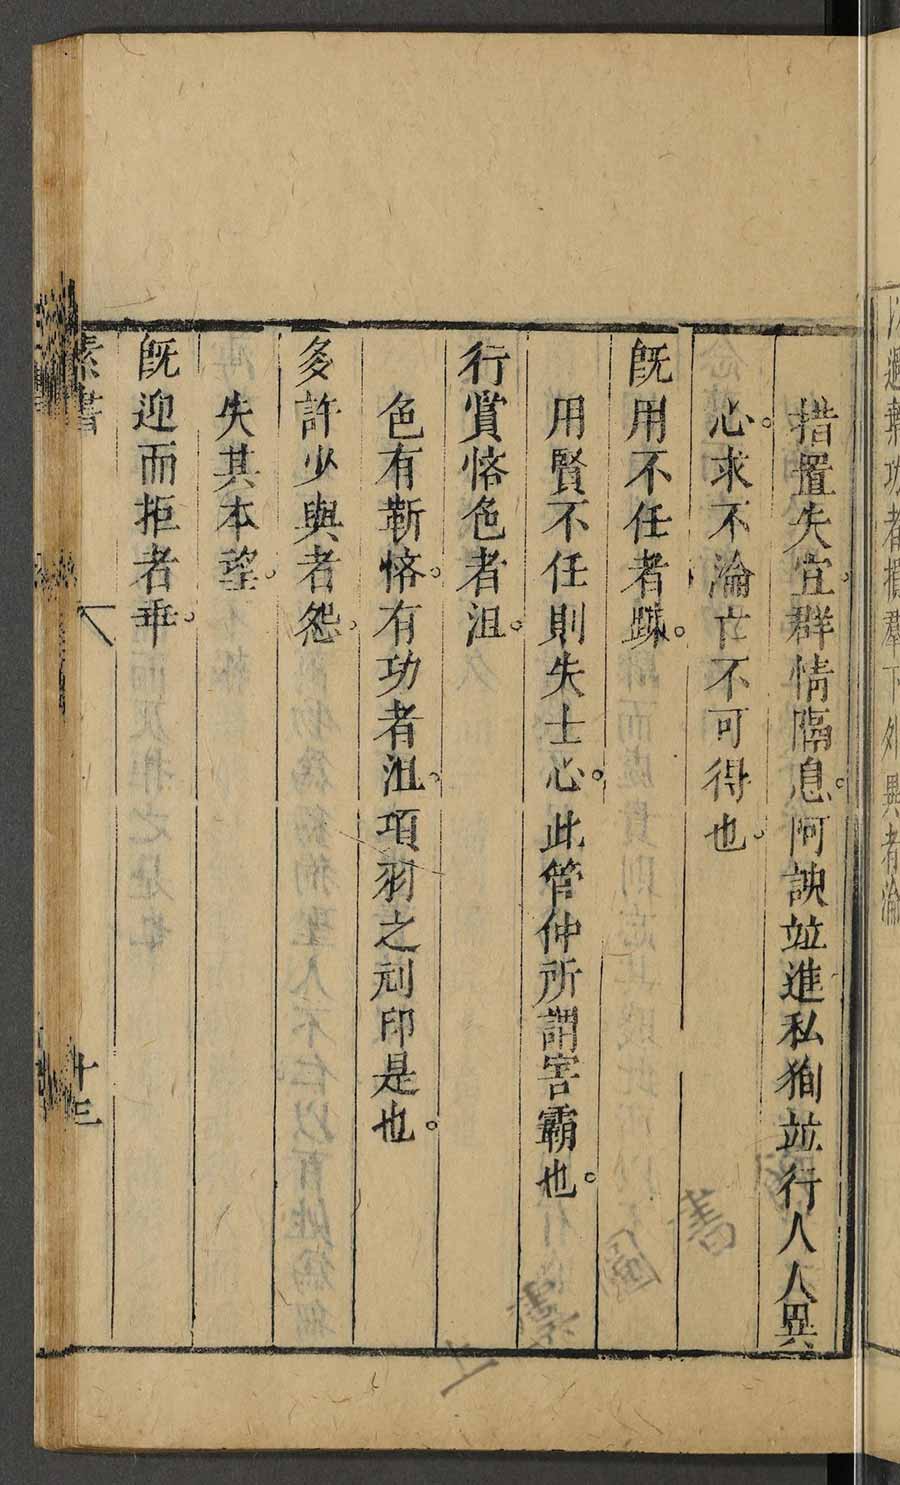 以過棄功者損羣下外異者淪
措置失宜。群情隔息。阿諛並進私狥並行人人異
心。求不淪亡不可得也。
旣用不任者踈。
用賢不任則失士心。此管仲所謂害霸也。
行賞悋色者沮。
色有靳悋。有功者沮。項羽之刓印是也。
多許少與者怨。
失其本望。
旣迎而拒者乖。
素書
十三